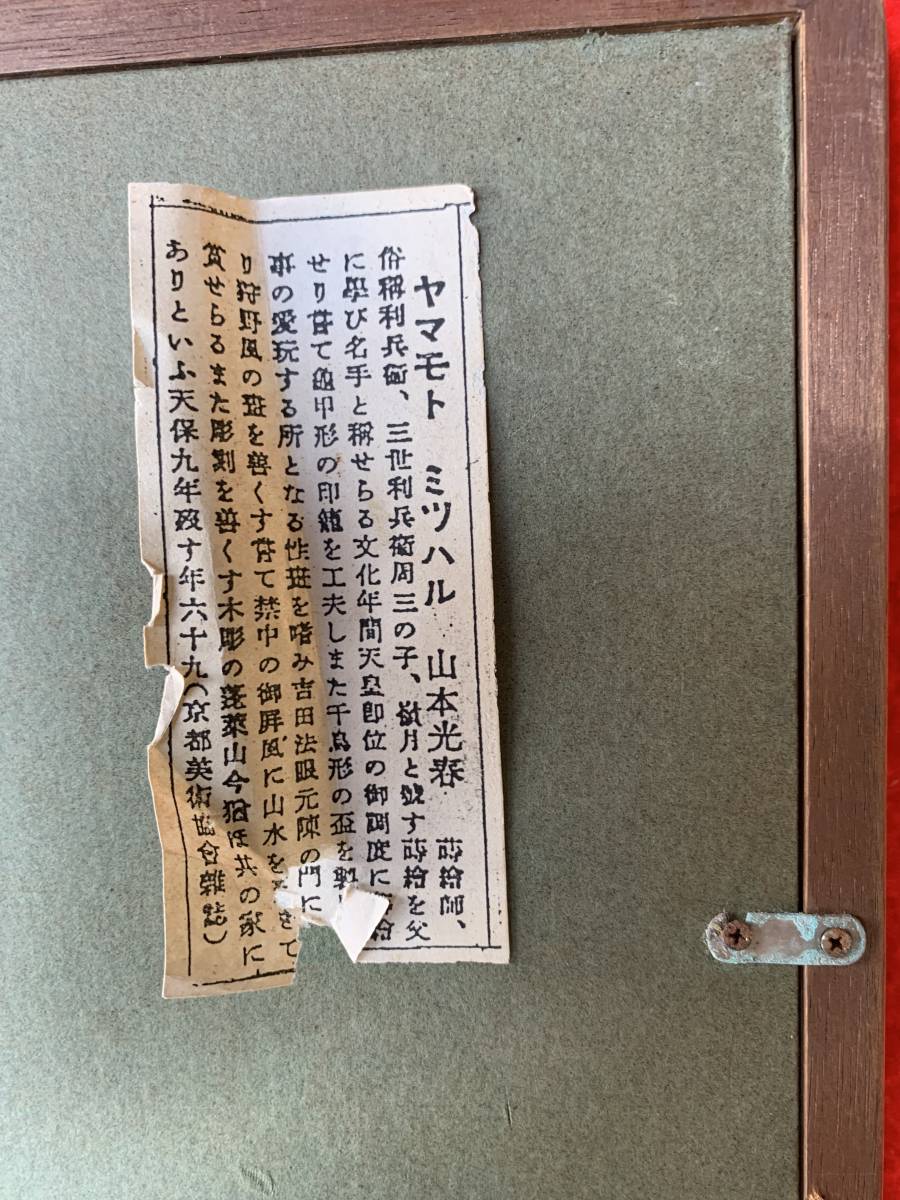 ヤマモト ミツハル 山本光春 蒔絵師、
俗稱利兵衞、三世利兵衞周三の子、月と號す蒔繪を父
に學び名手と稱せらる文化年間天皇卽位の御調度に蒔繪
せり嘗て龜甲形の印籠を工夫しまた千鳥形の盃を製し
事の愛玩する所となる性畫を嗜み吉田法眼元陳の門に
り狩野風の畫を善くす嘗て禁中の御屛風に山水を きて
賞せらるまた彫刻を善くす木彫の蓬萊山今猶ほ其の家に
ありといふ天保九年歿す年六十九(京都美術協會雜誌)